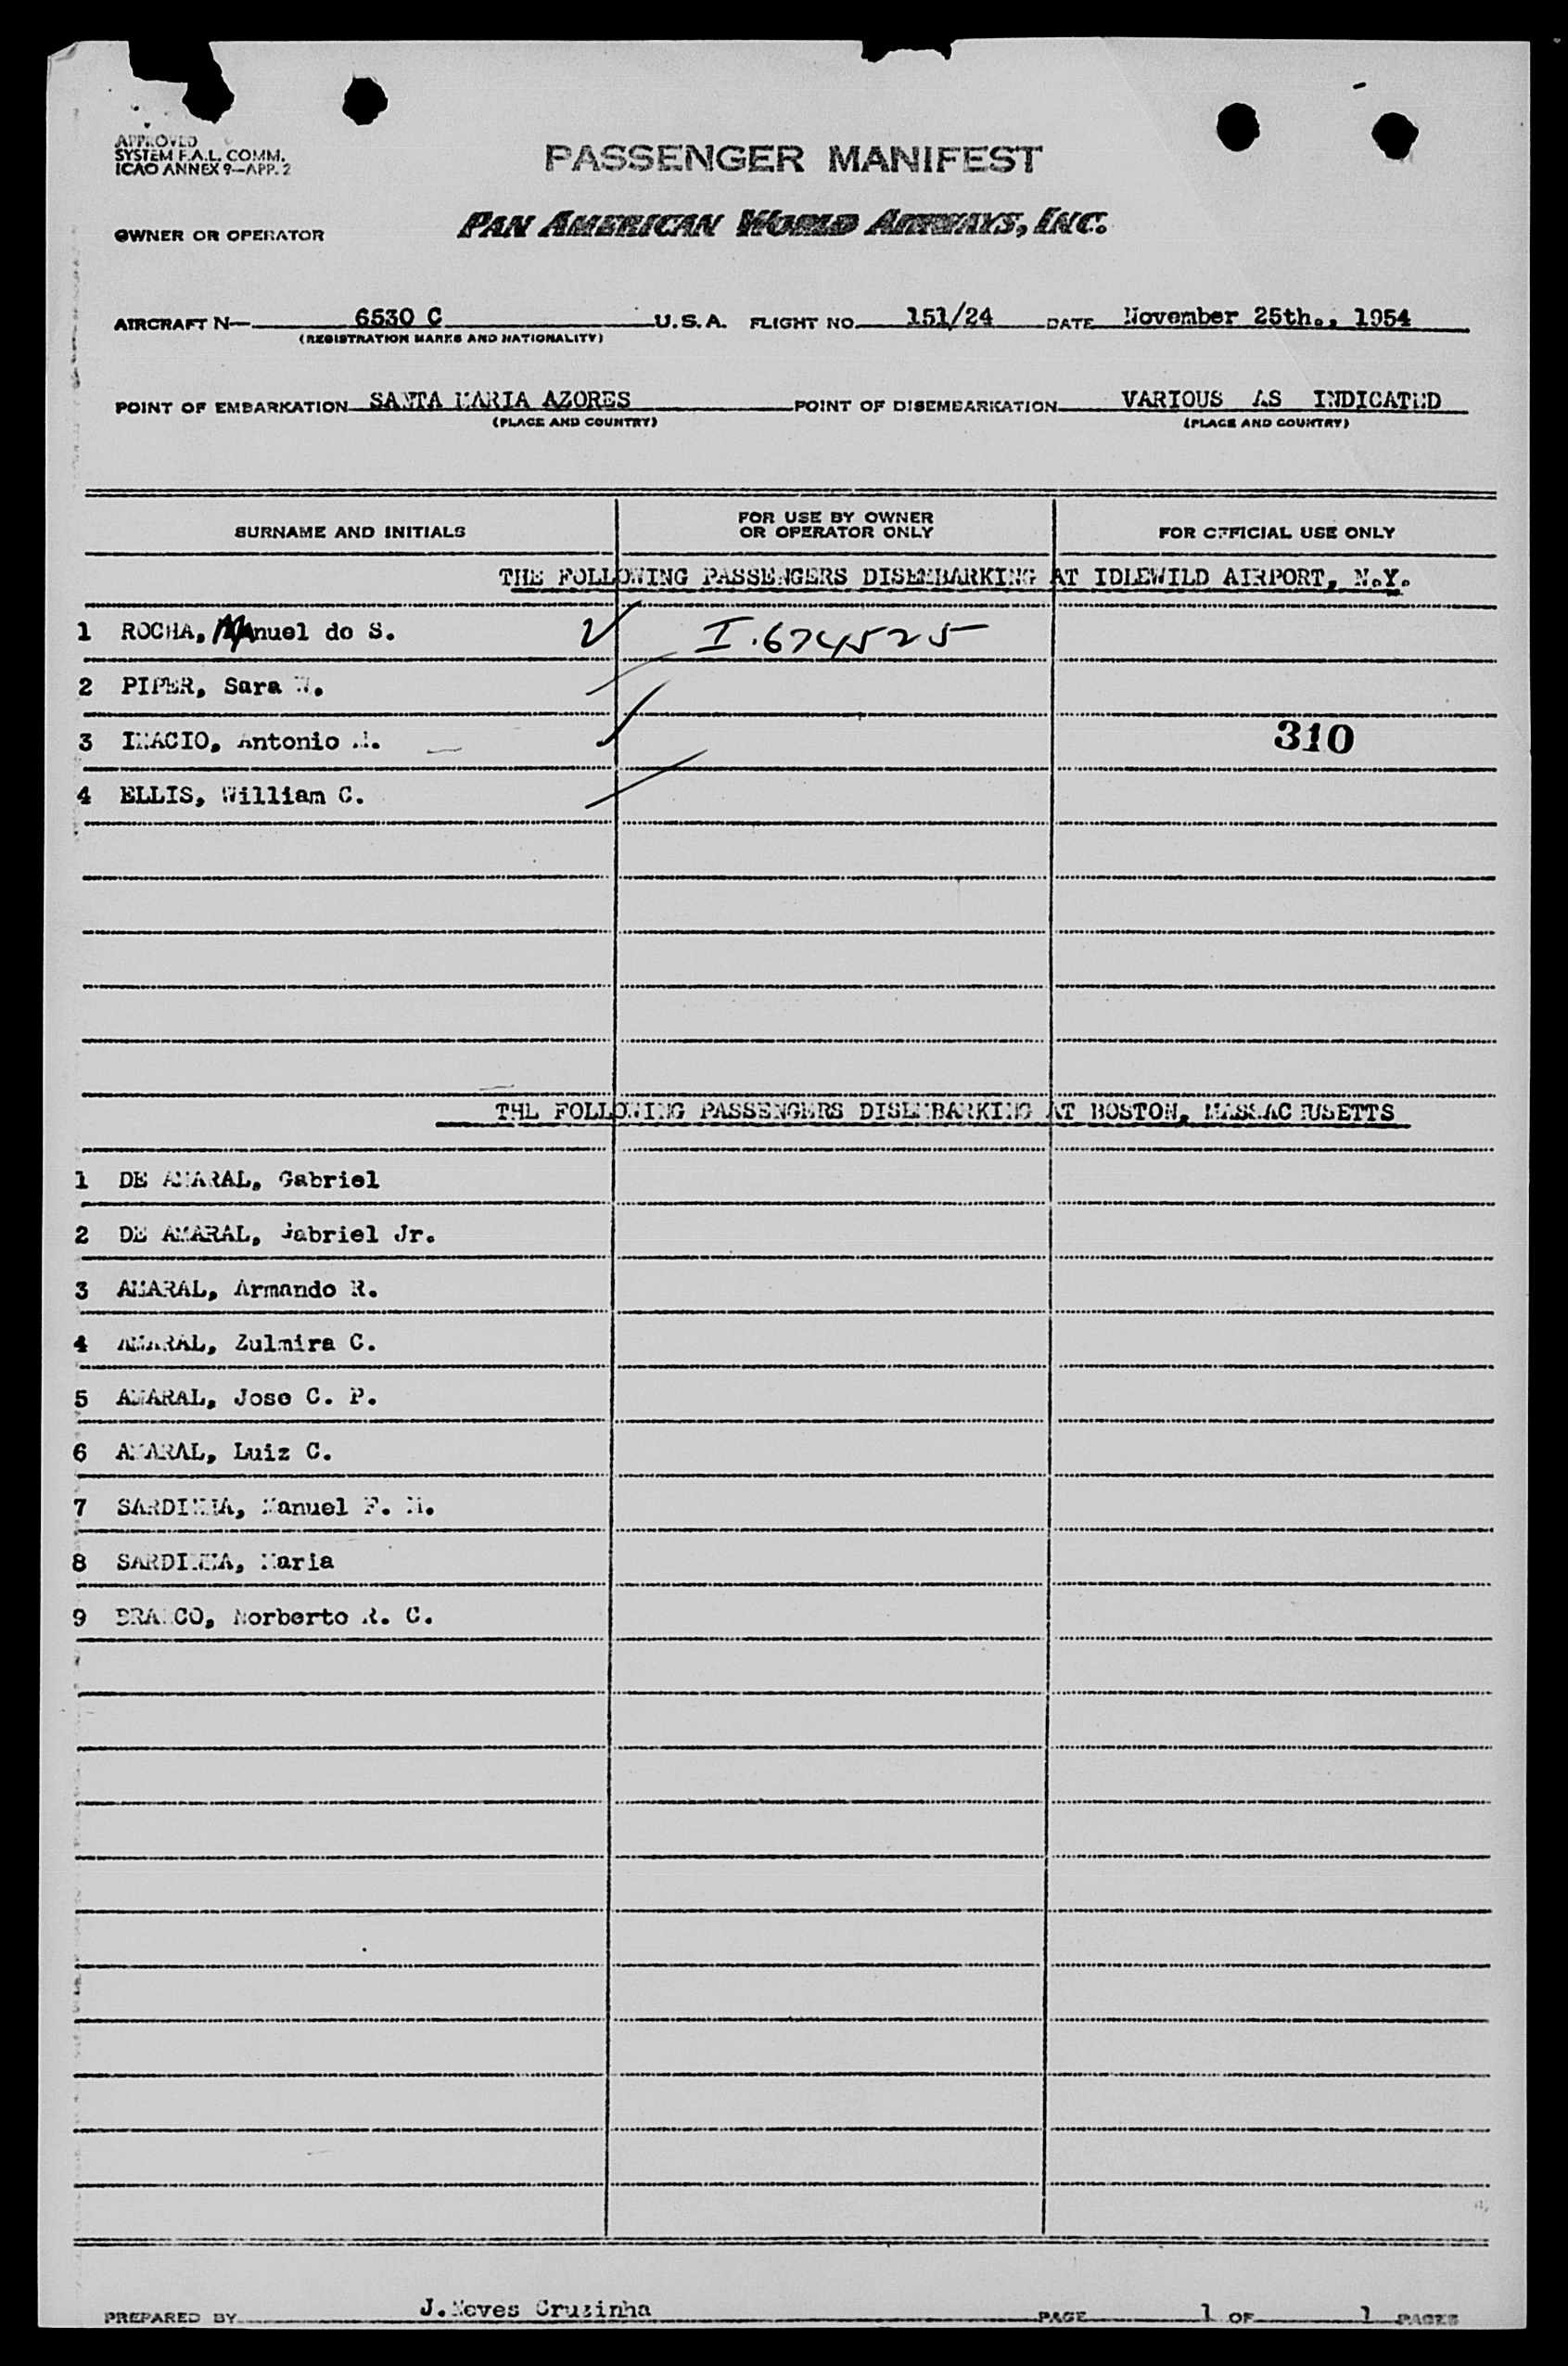 APPROVED
SYSTEM F.A.L. COMM.
ICAO ANNEX 9—APP. 2
PASSENGER MANIFEST
OWNER OR OPERATOR PAN AMERICAN WORLD AIRWAYS, INC.
AIRCRAFT N— 6530 C U.S.A. FLIGHT NO. 151/24 DATE November 25th., 1954
(REGISTRATION MARKS AND NATIONALITY)
POINT OF EMBARKATION SANTA MARIA AZORES POINT OF DISEMBARKATION VARIOUS AS INDICATED
(PLACE AND COUNTRY) (PLACE AND COUNTRY)
SURNAME AND INITIALS FOR USE BY OWNER OR OPERATOR ONLY FOR OFFICIAL USE ONLY
THE FOLLOWING PASSENGERS DISEMBARKING AT IDLEWILD AIRPORT, N.Y.
1 ROCHA, Manuel do S. I.674525
2 PIPER, Sara W.
3 INACIO, Antonio M. 310
4 ELLIS, William C.
THE FOLLOWING PASSENGERS DISEMBARKING AT BOSTON, MASSACHUSETTS
1 DE AMARAL, Gabriel
2 DE AMARAL, Gabriel Jr.
3 AMARAL, Armando R.
4 AMARAL, Zulmira C.
5 AMARAL, Jose C. P.
6 AMARAL, Luiz C.
7 SARDINHA, Manuel F. M.
8 SARDINHA, Maria
9 BRANCO, Norberto R. C.
PREPARED BY J.Neves Cruzinha PAGE 1 OF 1 PAGES